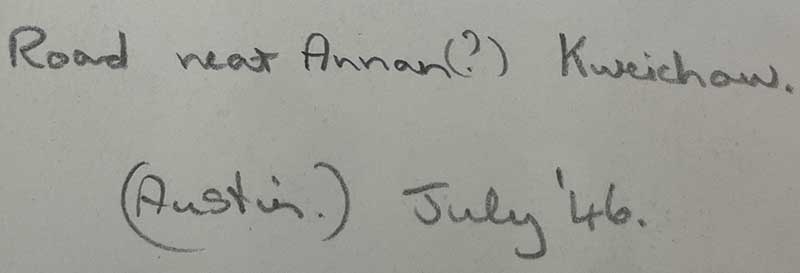 Road near Annan(?) Kweichow.
(Austin.) July '46.